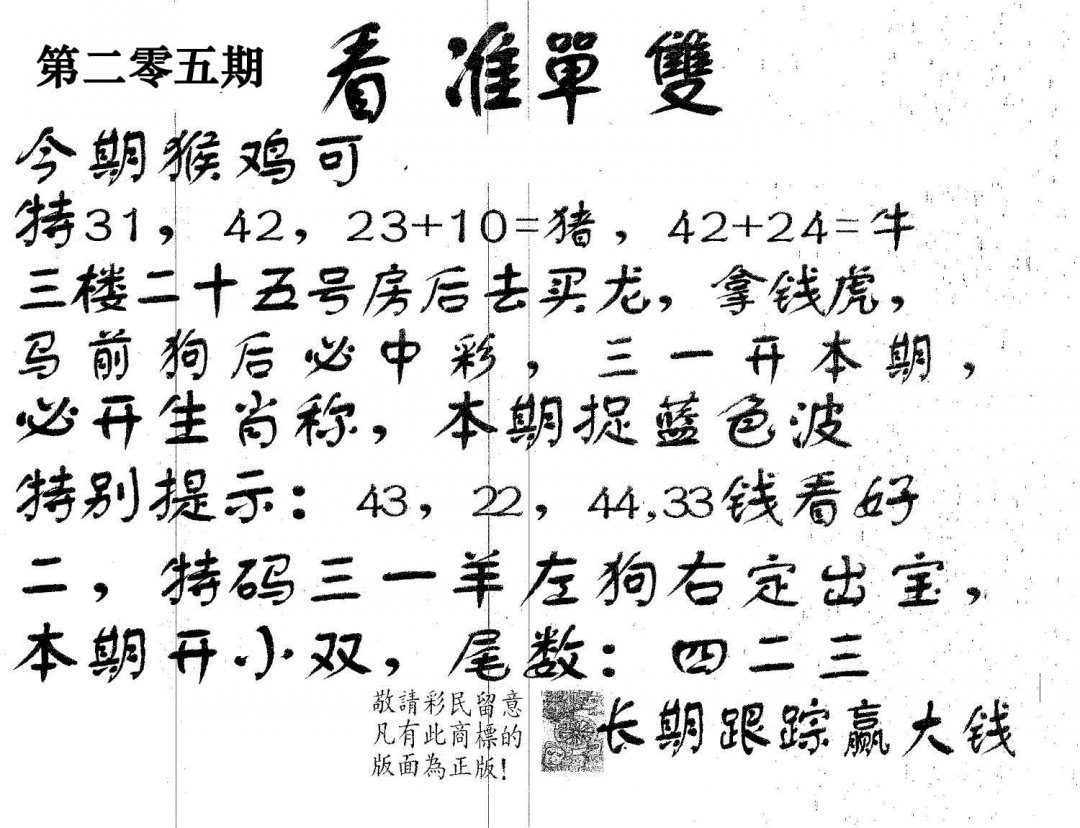 第二零五期
看准單雙
今期猴鸡可
特31，42，23+10=猪，42+24=牛
三楼二十五号房后去买龙，拿钱虎，
马前狗后必中彩，三一开本期，
必开生肖称，本期捉蓝色波
特别提示：43，22，44,33钱看好
二，特码三一羊左狗右定出宝，
本期开小双，尾数：四二三
敬請彩民留意
凡有此商標的
版面為正版！
长期跟踪赢大钱